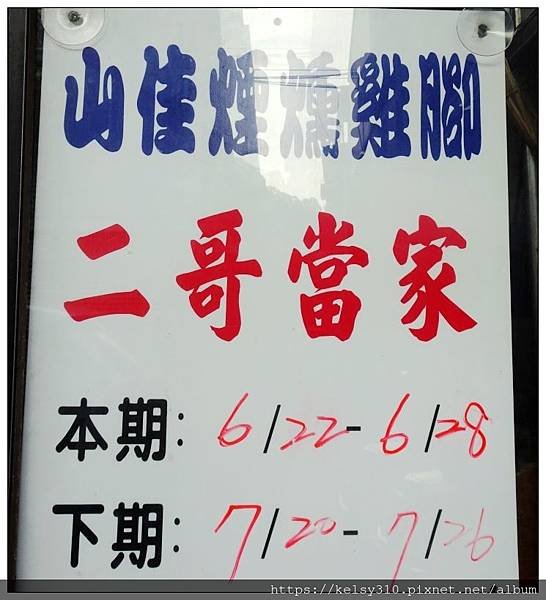 山佳煙燻雞腳
二哥當家
本期: 6/22-6/28
下期: 7/20-7/26
https://kelsy310.pixnet.net/album